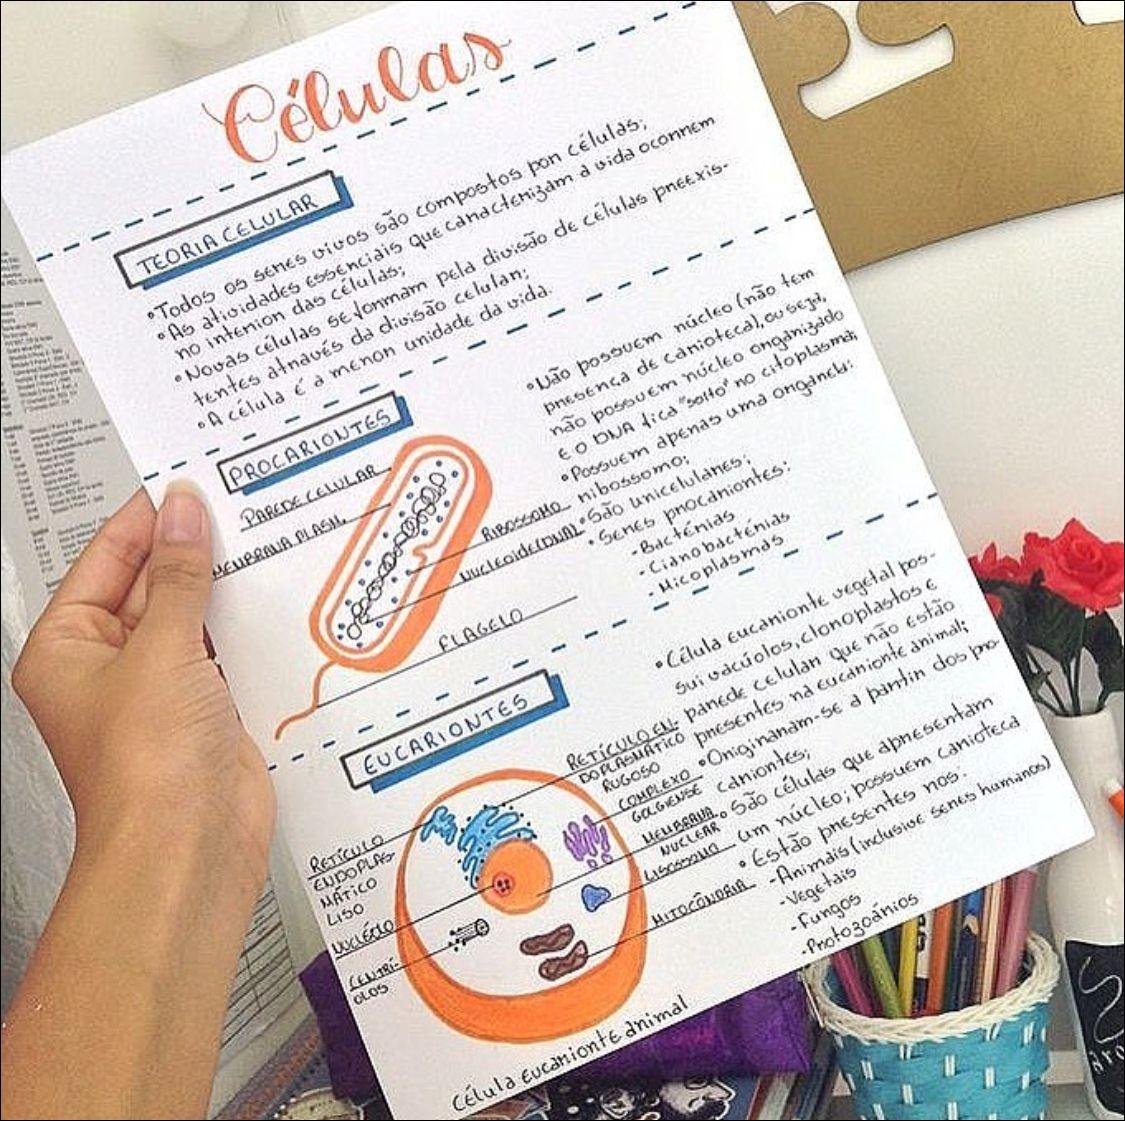 Células
TEORIA CELULAR
• Todos os seres vivos são compostos por células;
• As atividades essenciais que caracterizam a vida ocorrem
no interior das células;
• Novas células se formam pela divisão de células preexis-
tentes através da divisão celular;
• A célula é a menor unidade da vida.
PROCARIONTES
PAREDE CELULAR
MEMBRANA PLASM.
RIBOSSOMO
NUCLEOIDE (DNA)
FLAGELO
• Não possuem núcleo (não tem
presença de carioteca), ou seja,
não possuem núcleo organizado
e o DNA fica "solto" no citoplasma;
• Possuem apenas uma organela:
ribossomo;
• São unicelulares;
• Seres procariontes:
- Bactérias
- Cianobactérias
- Micoplasmas
EUCARIONTES
RETÍCULO EN-
DOPLASMÁTICO
RUGOSO
COMPLEXO
GOLGIENSE
MEMBRANA
NUCLEAR
LISOSSOMO
MITOCÔNDRIA
RETÍCULO
ENDOPLAS-
MÁTICO
LISO
NUCLÉOLO
CENTRÍ-
OLOS
Célula eucarionte animal
• Célula eucarionte vegetal pos-
sui vacúolos, cloroplastos e
parede celular que não estão
presentes na eucarionte animal;
• Originaram-se a partir dos pro-
cariontes;
• São células que apresentam
um núcleo; possuem carioteca
• Estão presentes nos:
- Animais (inclusive seres humanos)
- Vegetais
- Fungos
- Protozoários